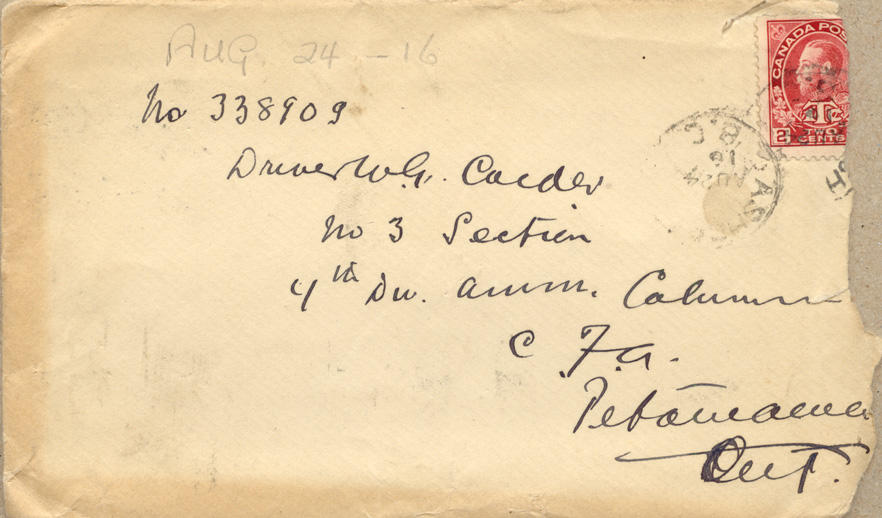 AUG. 24 - 16
No 338909
Driver W.G. Calder
No 3 Section
4th Div. Amm. Column
C.F.A.
Petawawa
Ont.
CANADA POS
2
1Tc
TWO
CENTS
B.C
AU 24
16